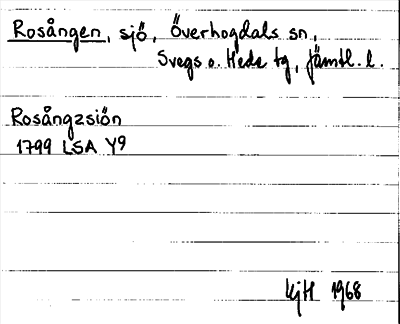 Rosången, sjö, Överhogdals sn,
Svegs o. Hede tg, Jämtl. l.
Rosångzsiön
1799 LSA Y9
KjH 1968